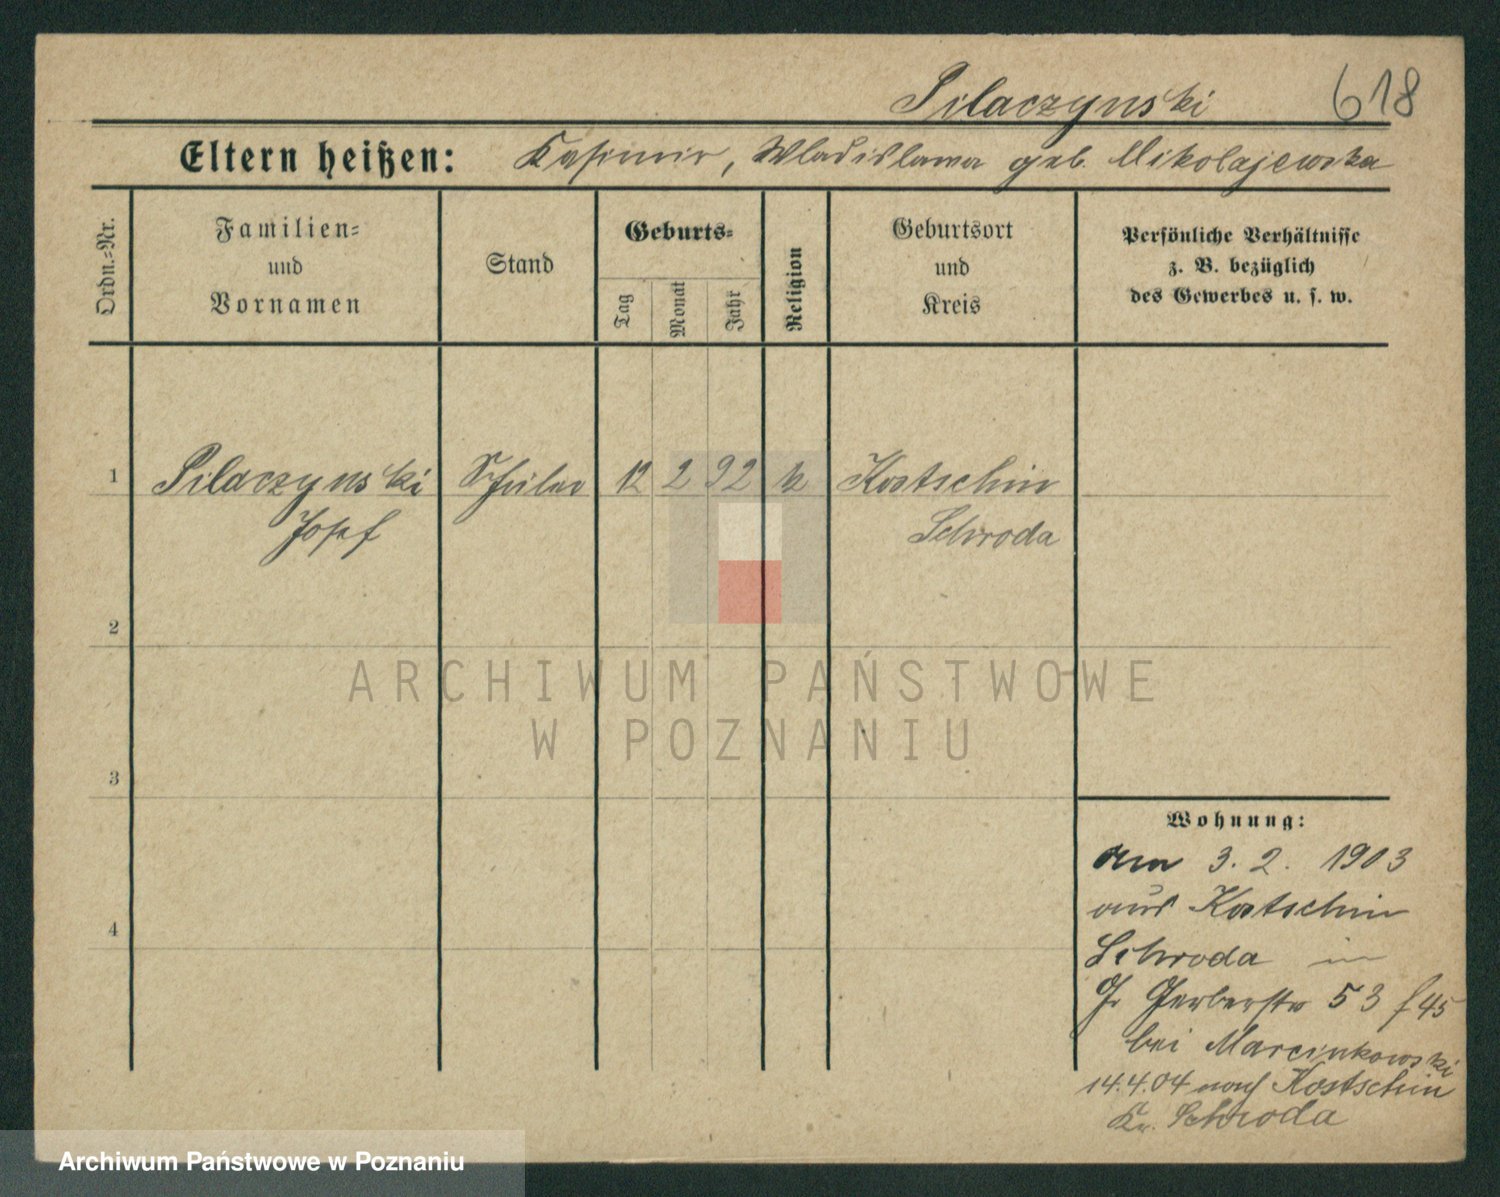 Pilaczynski 618
Eltern heißen: Kasimir, Wladislawa geb. Mikolajewska
Ordn.-Nr.
Familien-
und
Vornamen
Stand
Geburts-
Tag
Monat
Jahr
Religion
Geburtsort
und
Kreis
Persönliche Verhältnisse
z. B. bezüglich
des Gewerbes u. s. w.
1 Pilaczynski Schüler 12 2 92 k Kostschin
Josef Schroda
2
ARCHIWUM PAŃSTWOWE
W POZNANIU
3
Wohnung:
am 3. 2. 1903
aus Kostschin
Schroda in
Gr Gerberstr 53 f 45
bei Marcinkowski
14.4.04 nach Kostschin
Kr. Schroda
4
Archiwum Państwowe w Poznaniu